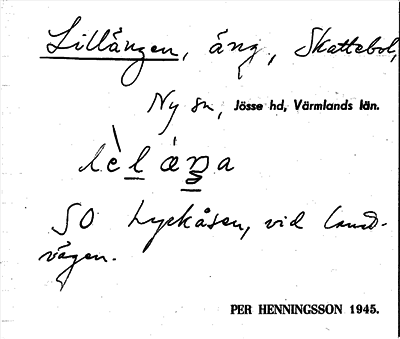 Lillängen, äng, Skattebol,
Ny sn, Jösse hd, Värmlands län.
lèlæŋa
SO Lyckåsen, vid lands-
vägen.
PER HENNINGSSON 1945.